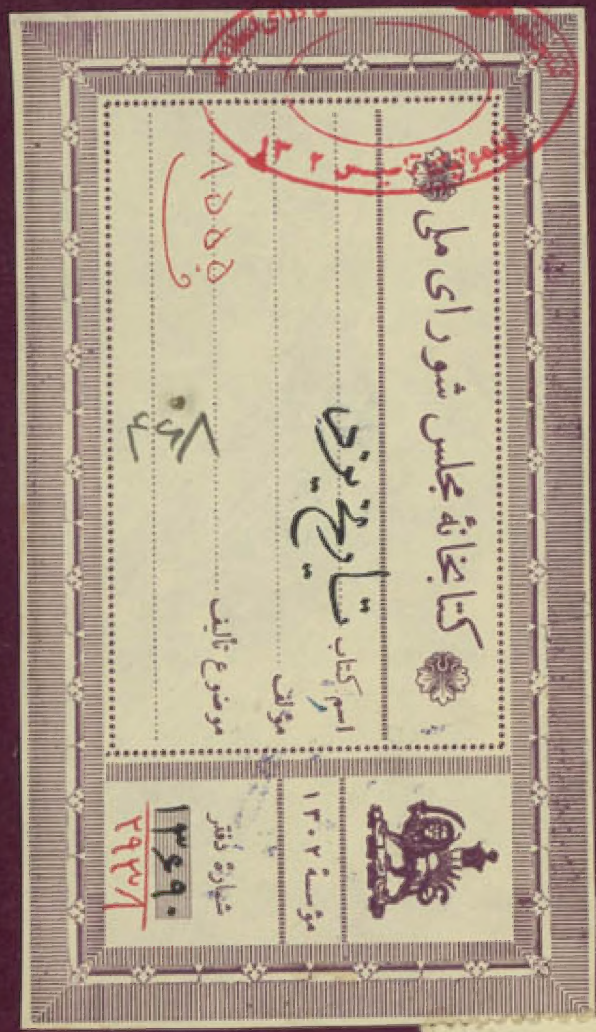 کتابخانهٔ مجلس شورای ملی
اسم کتاب تاریخ یزد
مؤلف
موضوع تألیف
۸۵۵۵
مؤسسهٔ ۱۳۰۲
شمارهٔ دفتر
۱۳۶۹۰